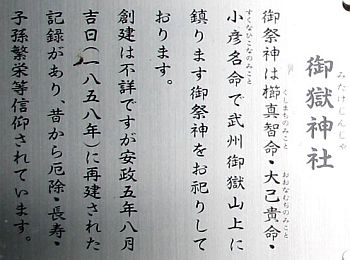 御嶽神社
みたけじんじゃ
御祭神は櫛真智命・大己貴命・
くしまちのみこと
おおなむちのみこと
小彦名命で武州御嶽山上に
すくなひこなのみこと
鎮ります御祭神をお祀りして
おります。
創建は不詳ですが安政五年八月
吉日(一八五八年)に再建された
記録があり、昔から厄除・長寿・
子孫繁栄等信仰されています。